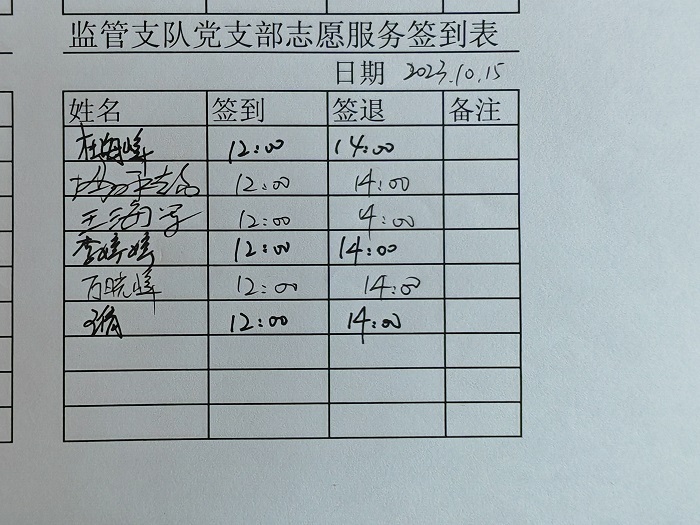 监管支队党支部志愿服务签到表
日期 2023.10.15
姓名 签到 签退 备注
杜海峰 12:00 14:00
12:00 14:00
王海 12:00 4:00
李婷婷 12:00 14:00
万晓峰 12:00 14:00
12:00 14:00